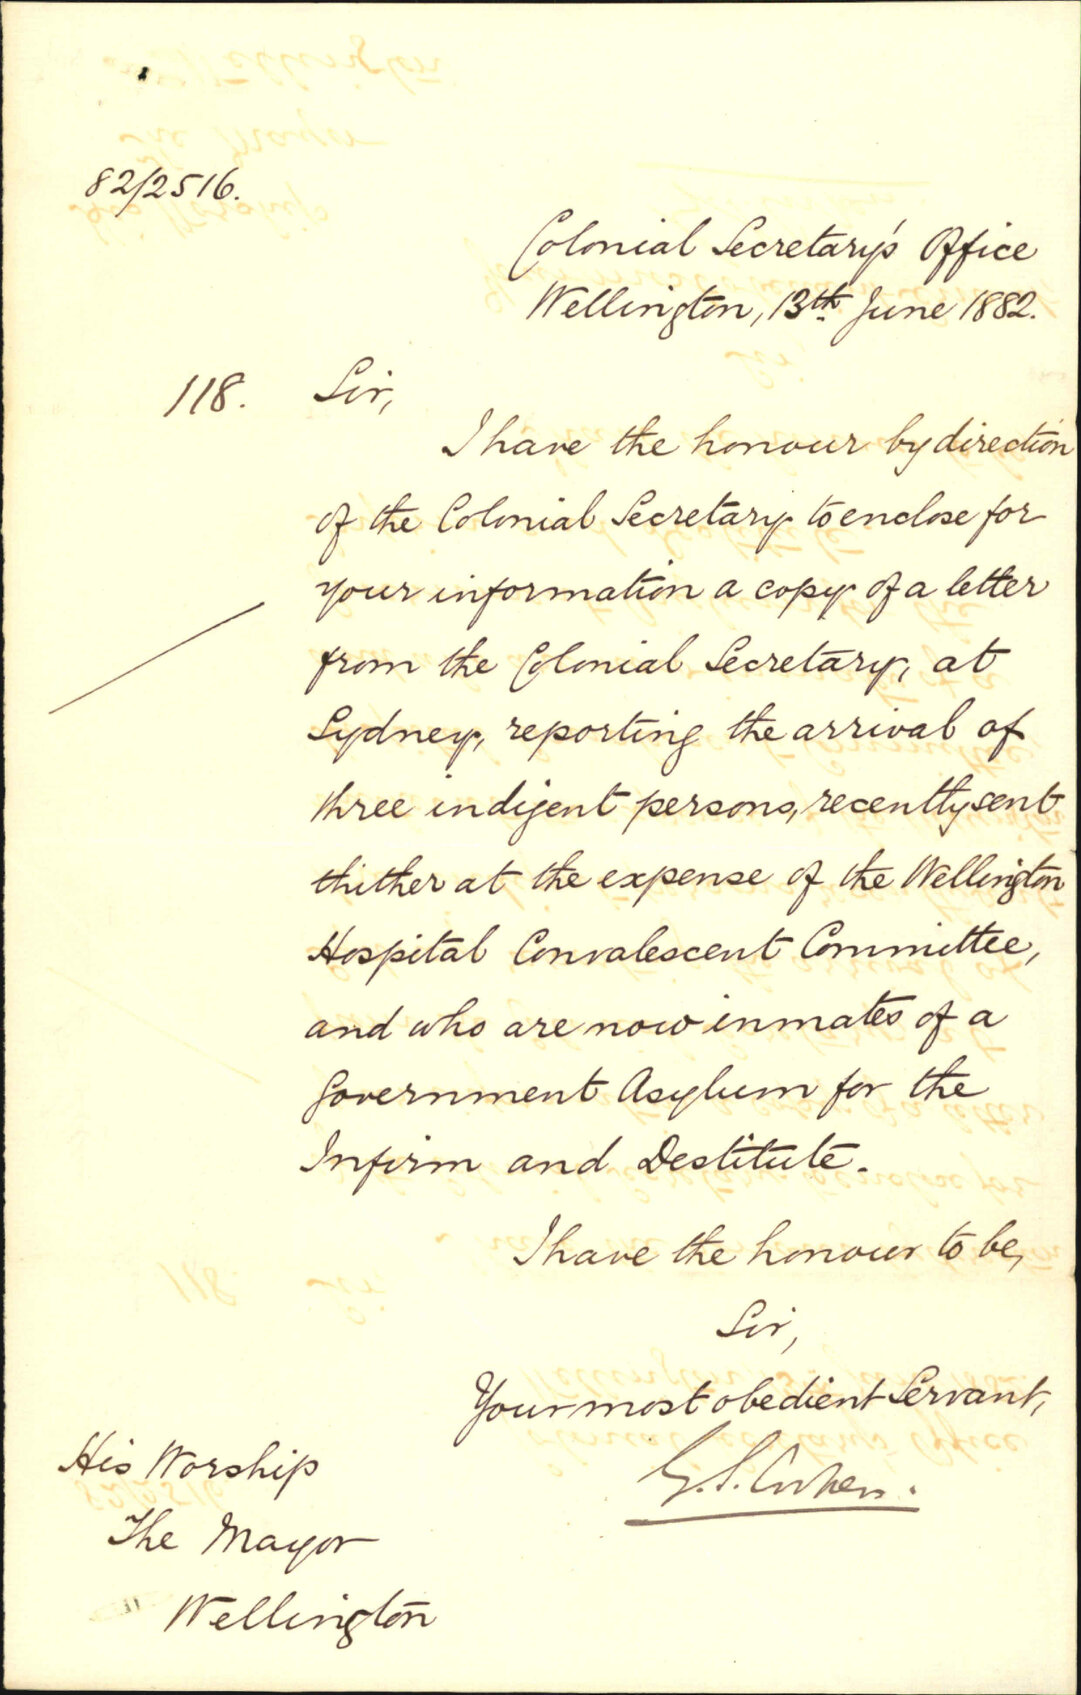 82/2516.
Colonial Secretary's Office
Wellington, 13th June 1882.
118. Sir,
I have the honour by direction
of the Colonial Secretary to enclose for
your information a copy of a letter
from the Colonial Secretary, at
Sydney, reporting the arrival of
three indigent persons, recently sent
thither at the expense of the Wellington
Hospital Convalescent Committee,
and who are now inmates of a
Government Asylum for the
Infirm and Destitute.
I have the honour to be,
Sir,
Your most obedient Servant,
G. S. Cooper.
His Worship
The Mayor
Wellington